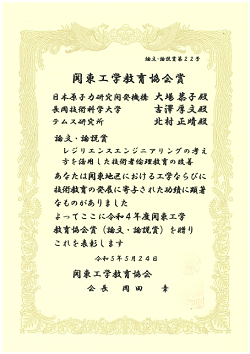 論文・論説賞第22号
関東工学教育協会賞
日本原子力研究開発機構 大場恭子殿
長岡技術科学大学 吉澤厚文殿
テムス研究所 北村正晴殿
論文・論説賞
レジリエンスエンジニアリングの考え
方を活用した技術者倫理教育の改善
あなたは関東地区における工学ならびに
技術教育の発展に寄与された功績に顕著
なものがありました
よってここに令和4年度関東工学
教育協会賞（論文・論説賞）を贈り
これを表彰します
令和5年5月24日
関東工学教育協会
会長 岡田